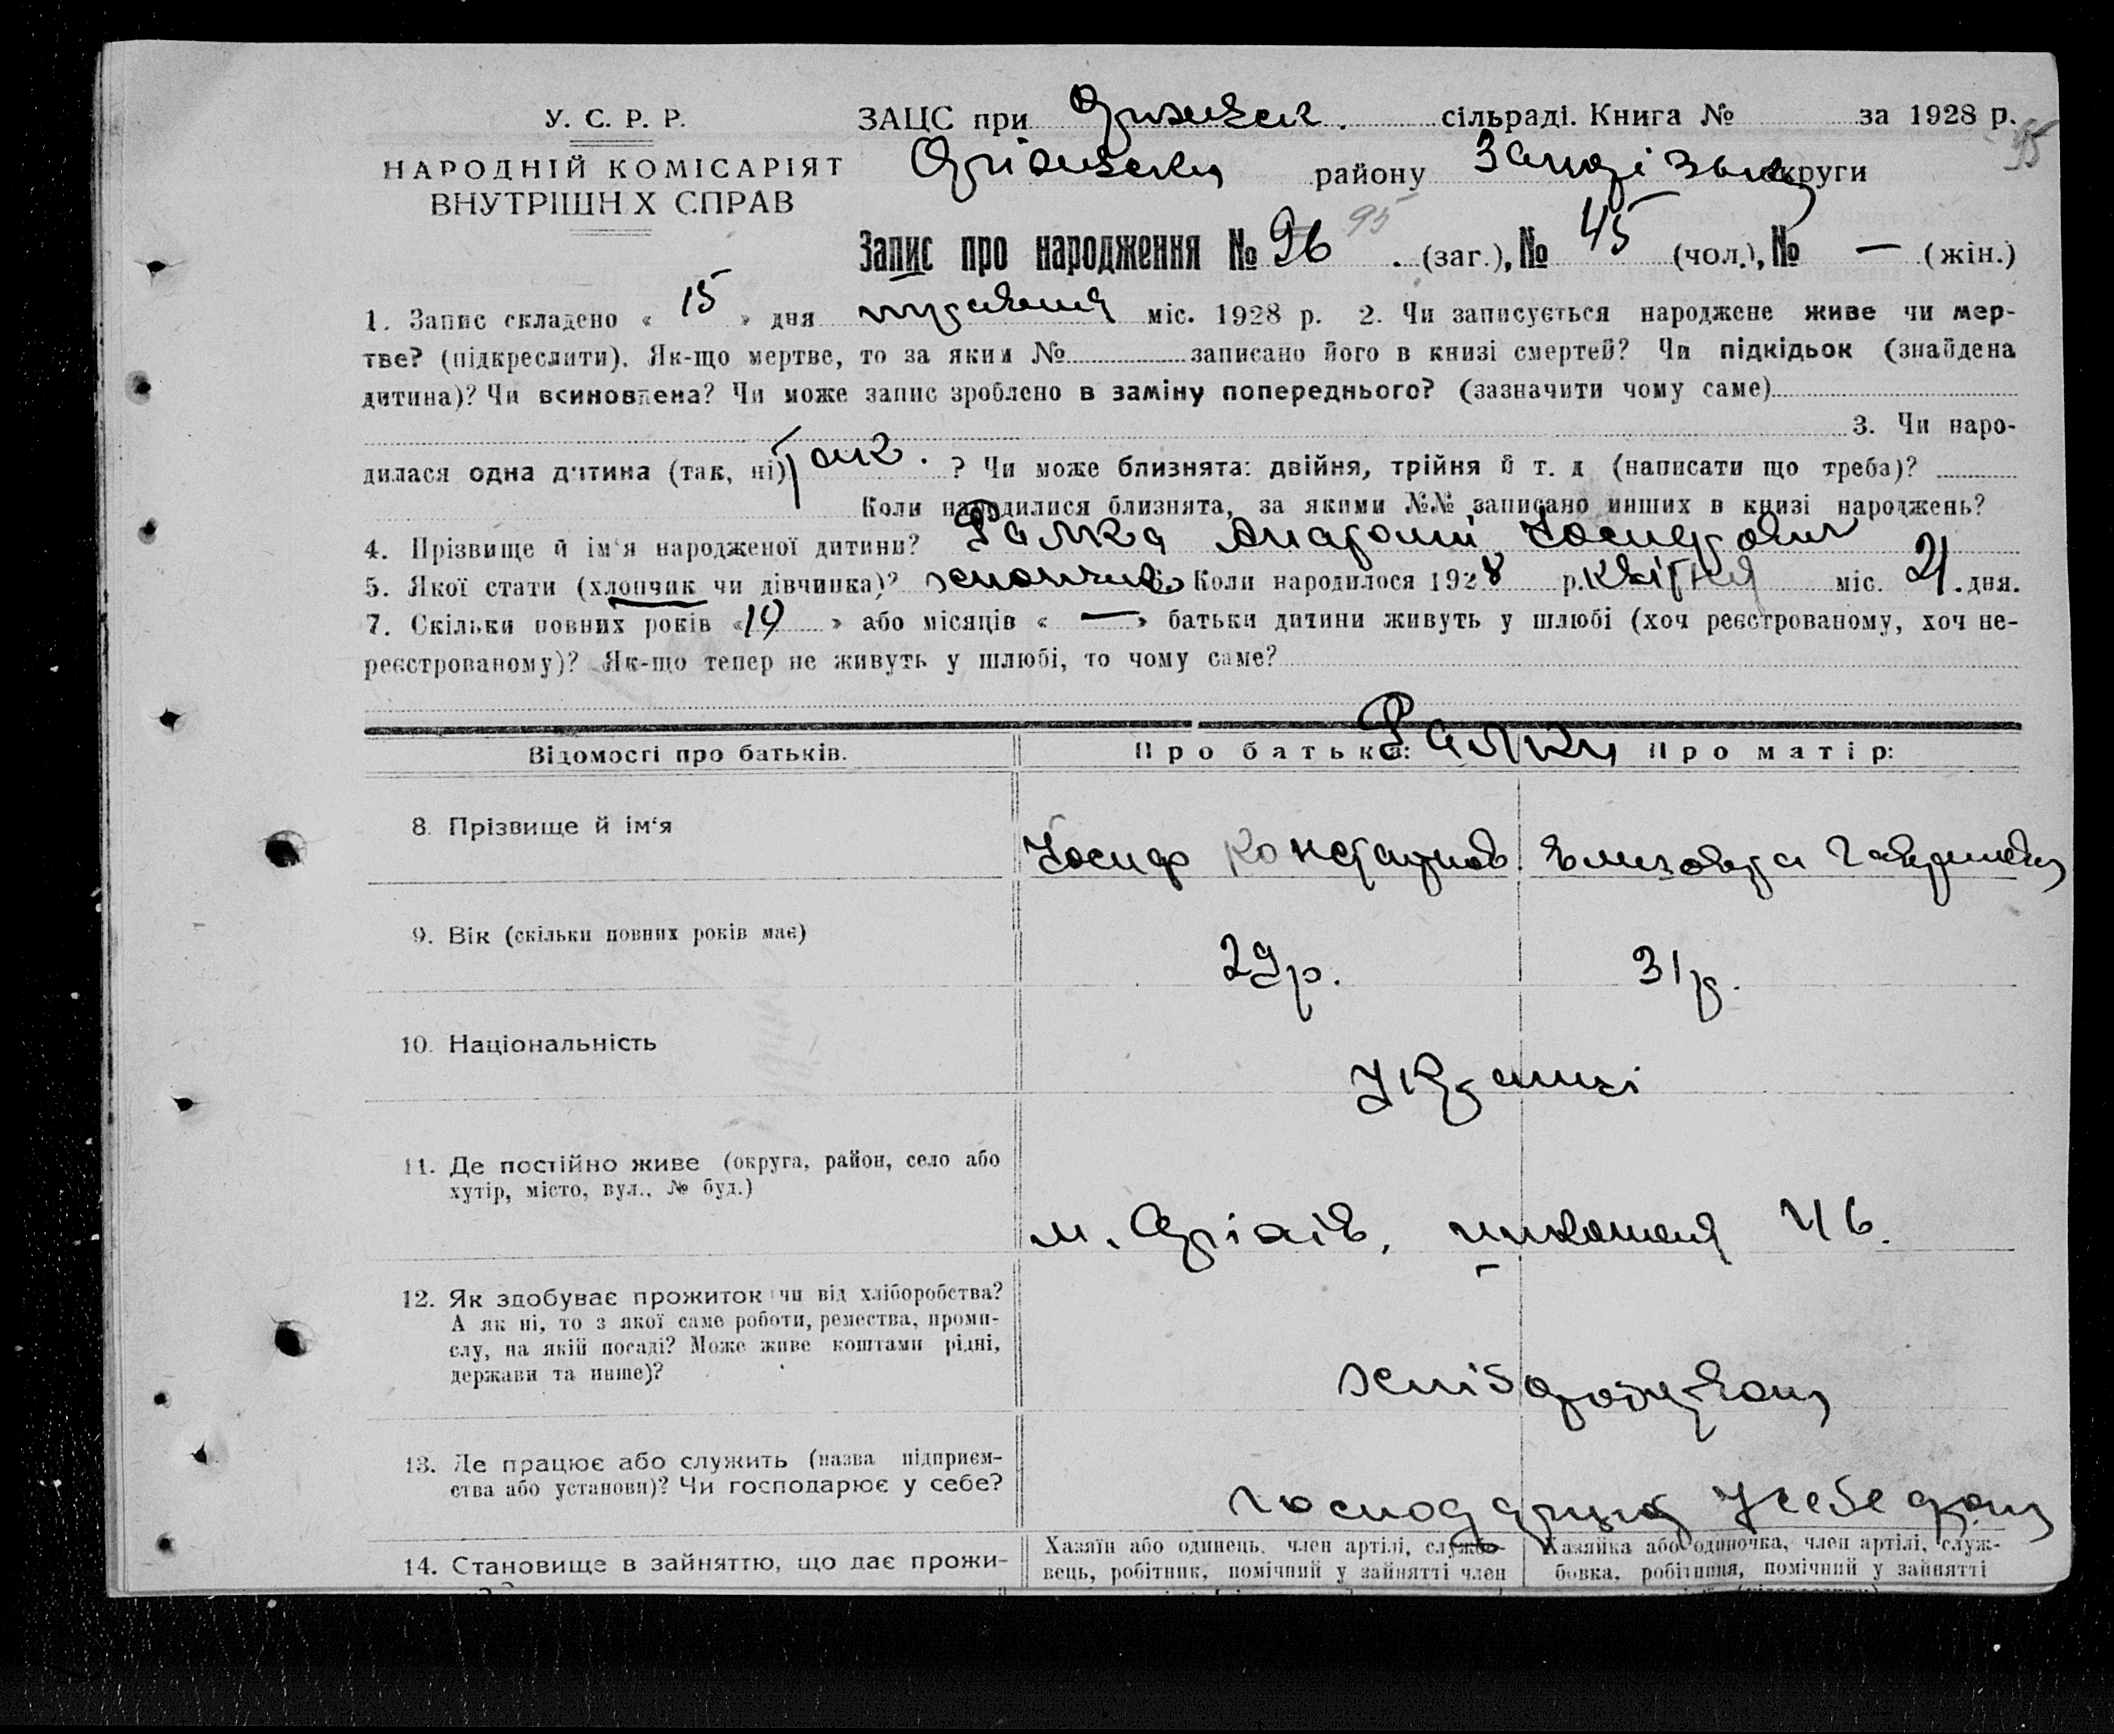 У. С. Р. Р.
НАРОДНІЙ КОМІСАРІЯТ
ВНУТРІШН Х СПРАВ
ЗАЦС при Оріхівськ. сільраді. Книга № за 1928 р.
95
Оріхівськ району Запоріз округи
Запис про народження № 96 95 (заг.), № 45 (чол.), № — (жін.)
1. Запис складено « 15 » дня травня міс. 1928 р. 2. Чи записується народжене живе чи мер-
тве? (підкреслити). Як-що мертве, то за яким № записано його в книзі смертей? Чи підкідьок (знайдена
дитина)? Чи всиновлена? Чи може запис зроблено в заміну попереднього? (зазначити чому саме)
3. Чи наро-
дилася одна дитина (так, ні) так. ? Чи може близнята: двійня, трійня й т. д (написати що треба)?
Коли народилися близнята, за якими №№ записано инших в книзі народжень?
4. Прізвище й ім'я народженої дитини? Галка Анатолій Йосипович
5. Якої стати (хлопчик чи дівчинка)? хлопчик 6. Коли народилося 1928 р. квітня міс. 21. дня.
7. Скільки повних років «10» або місяців « — » батьки дитини живуть у шлюбі (хоч реєстрованому, хоч не-
реєстрованому)? Як-що тепер не живуть у шлюбі, то чому саме?
Відомості про батьків. Про батька: Галки Про матір:
8. Прізвище й ім'я Йосиф Константнов. Елизавета
9. Вік (скільки повних років має) 29 р. 31 р.
10. Національність Українці
11. Де постійно живе (округа, район, село або
хутір, місто, вул., № буд.)
м. Оріхів,
12. Як здобуває прожиток чи від хліборобства?
А як ні, то з якої саме роботи, ремества, проми-
слу, на якій посаді? Може живе коштами рідні,
держави та инше)?
хліборобством
13. Де працює або служить (назва підприєм-
ства або установи)? Чи господарює у себе?
господарює у себе
14. Становище в зайняттю, що дає прожи-
Хазяїн або одинець, член артілі, службо-
вець, робітник, помічний у зайнятті член
Хазяйка або одиночка, член артілі, служ-
бовка, робітниця, помічний у зайнятті